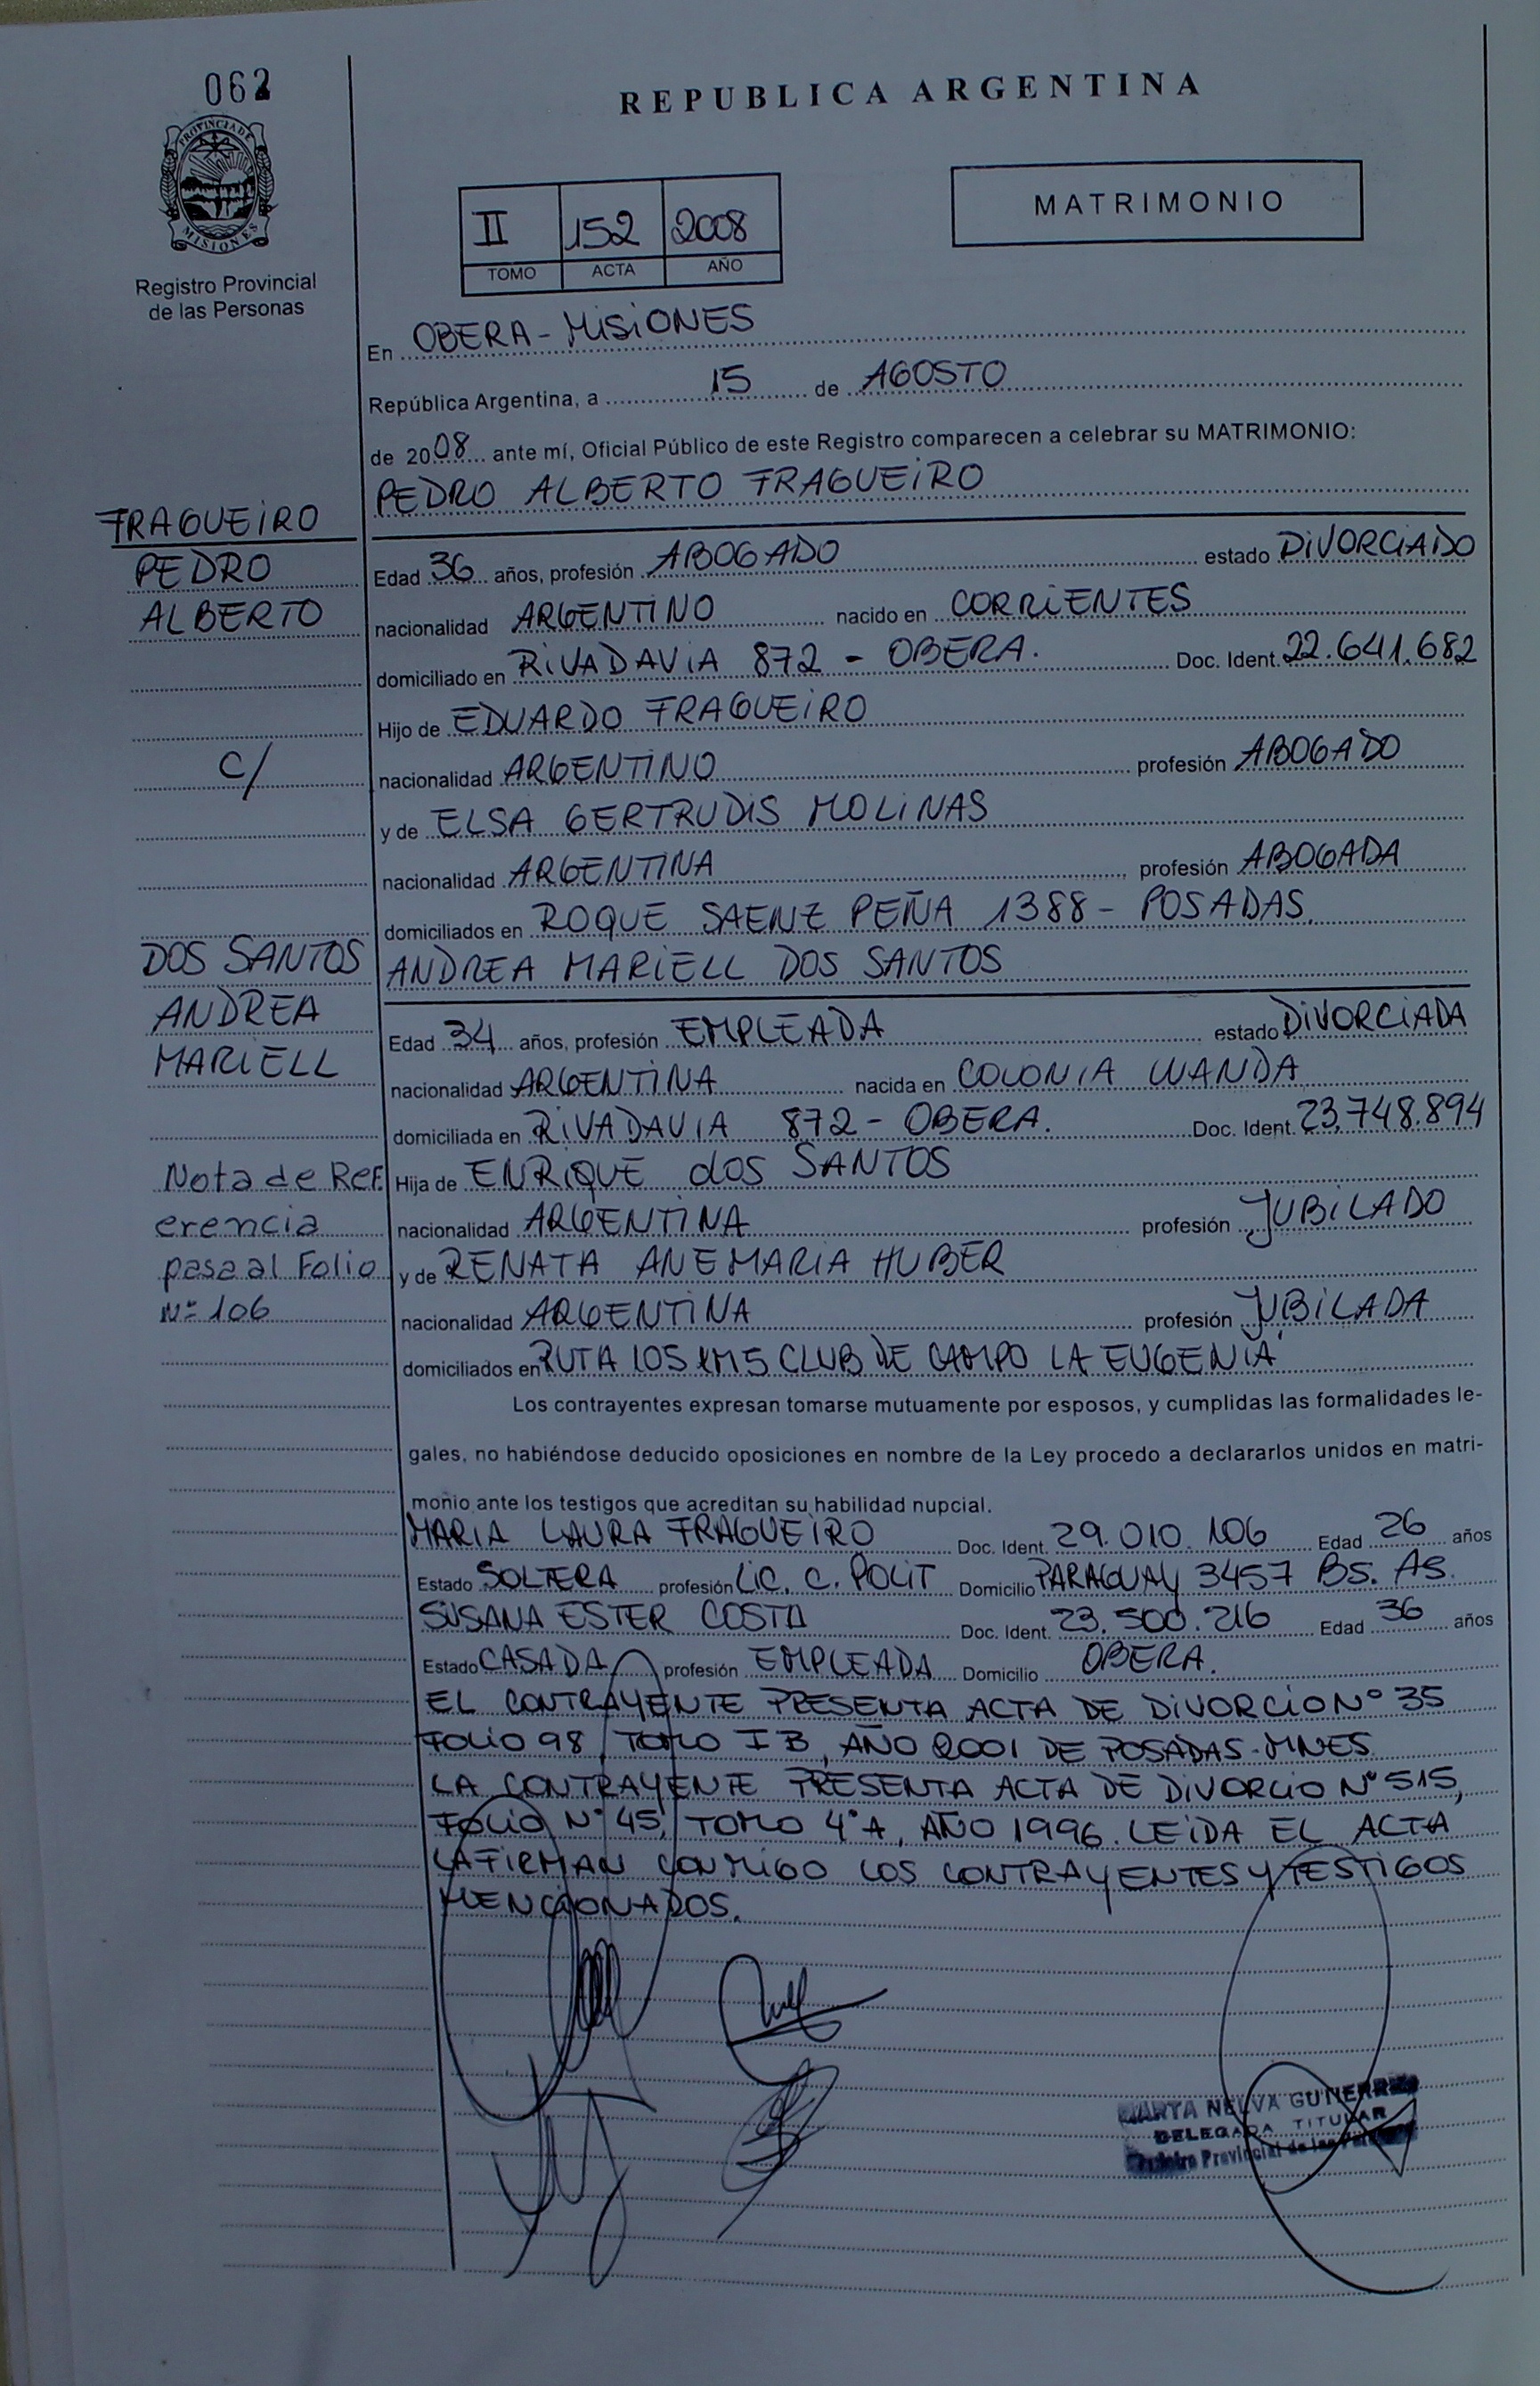 062
REPUBLICA ARGENTINA
PROVINCIA DE
MISIONES
Registro Provincial
de las Personas
II 152 2008
TOMO ACTA AÑO
MATRIMONIO
En OBERA - MISIONES
República Argentina, a 15 de AGOSTO
de 2008 ante mí, Oficial Público de este Registro comparecen a celebrar su MATRIMONIO:
PEDRO ALBERTO FRAGUEIRO
FRAGUEIRO
PEDRO
ALBERTO
Edad 36 años, profesión ABOGADO estado DIVORCIADO
nacionalidad ARGENTINO nacido en CORRIENTES
domiciliado en RIVADAVIA 872 - OBERA. Doc. Ident. 22.641.682
Hijo de EDUARDO FRAGUEIRO
C/
nacionalidad ARGENTINO profesión ABOGADO
y de ELSA GERTRUDIS MOLINAS
nacionalidad ARGENTINA profesión ABOGADA
domiciliados en ROQUE SAENZ PEÑA 1388 - POSADAS.
DOS SANTOS
ANDREA
MARIELL
ANDREA MARIELL DOS SANTOS
Edad 34 años, profesión EMPLEADA estado DIVORCIADA
nacionalidad ARGENTINA nacida en COLONIA WANDA
domiciliada en RIVADAVIA 872 - OBERA. Doc. Ident. 23.748.894
Nota de Ref.
erencia
pasa al Folio
Nº 106
Hija de ENRIQUE dOS SANTOS
nacionalidad ARGENTINA profesión JUBILADO
y de RENATA ANEMARIA HUBER
nacionalidad ARGENTINA profesión JUBILADA
domiciliados en RUTA 105 KM 5 CLUB DE CAMPO LA EUGENIA
Los contrayentes expresan tomarse mutuamente por esposos, y cumplidas las formalidades le-
gales, no habiéndose deducido oposiciones en nombre de la Ley procedo a declararlos unidos en matri-
monio ante los testigos que acreditan su habilidad nupcial.
MARIA LAURA FRAGUEIRO Doc. Ident. 29.010.106 Edad 26 años
Estado SOLTERA profesión LIC. C. POLIT Domicilio PARAGUAY 3457 BS. AS.
SUSANA ESTER COSTA Doc. Ident. 23.500.216 Edad 36 años
Estado CASADA profesión EMPLEADA Domicilio OBERA.
EL CONTRAYENTE PRESENTA ACTA DE DIVORCIO Nº 35
FOLIO 98, TOMO I B, AÑO 2001 DE POSADAS - MNES.
LA CONTRAYENTE PRESENTA ACTA DE DIVORCIO Nº 515,
FOLIO Nº 45, TOMO 4º A, AÑO 1996. LEIDA EL ACTA
LA FIRMAN CONMIGO LOS CONTRAYENTES Y TESTIGOS
MENCIONADOS.
MARTA NELVA GUTIERREZ
DELEGADA TITULAR
Registro Provincial de las Personas